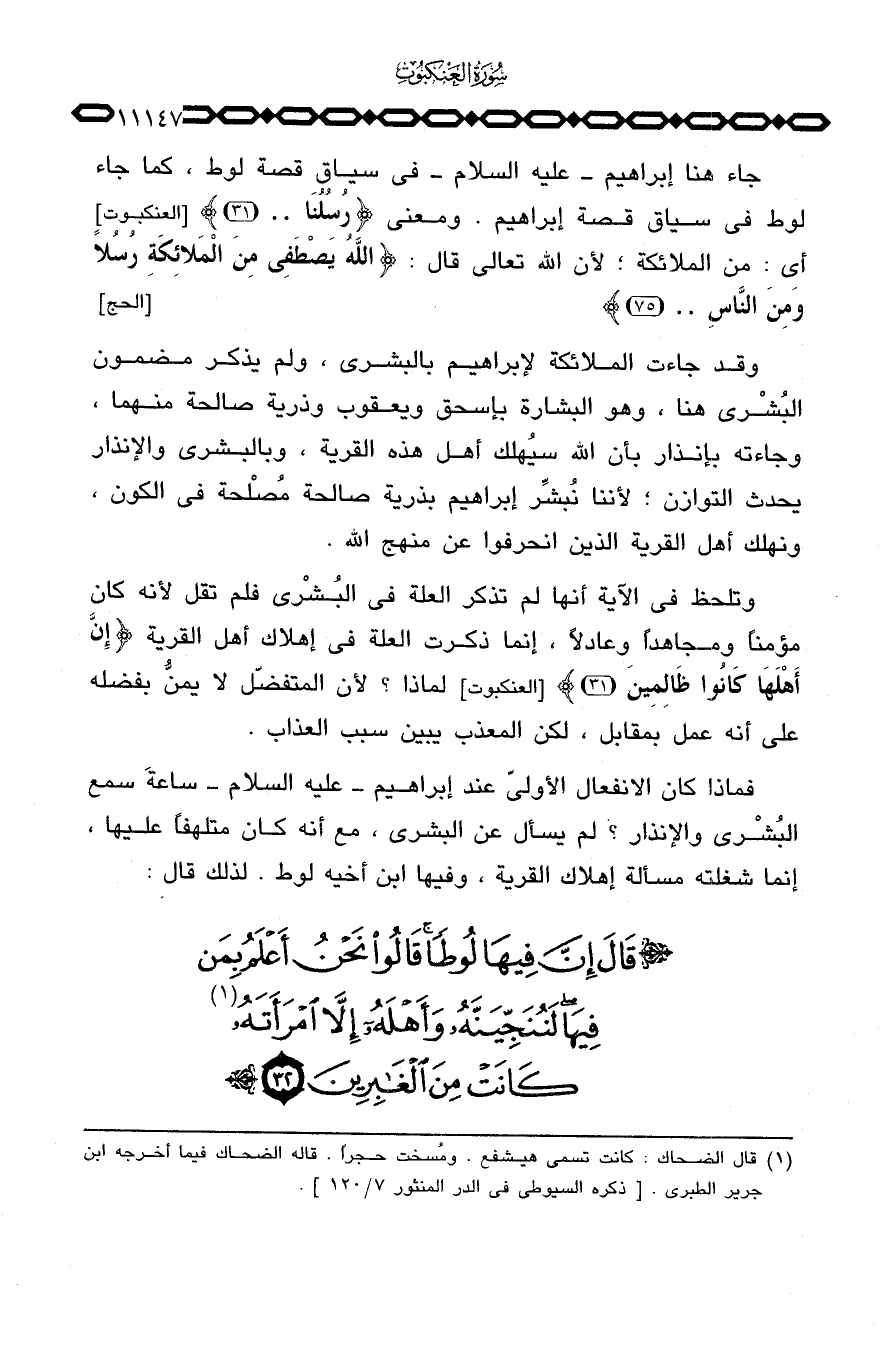 سُورَةُ العَنْكَبُوتِ
١١١٤٧
جاء هنا إبراهيم - عليه السلام - فى سياق قصة لوط ، كما جاء
لوط فى سياق قصة إبراهيم . ومعنى ﴿ رُسُلُنَا .. (٣١) ﴾ [العنكبوت]
أى : من الملائكة ؛ لأن الله تعالى قال : ﴿ اللَّهُ يَصْطَفِى مِنَ الْمَلائِكَةِ رُسُلاً
وَمِنَ النَّاسِ .. (٧٥) ﴾ [الحج]
وقد جاءت الملائكة لإبراهيم بالبشرى ، ولم يذكر مضمون
البُشْرى هنا ، وهو البشارة بإسحق ويعقوب وذرية صالحة منهما ،
وجاءته بإنذار بأن الله سيُهلك أهل هذه القرية ، وبالبشرى والإنذار
يحدث التوازن ؛ لأننا نُبشِّر إبراهيم بذرية صالحة مُصلْحة فى الكون ،
ونهلك أهل القرية الذين انحرفوا عن منهج الله .
وتلحظ فى الآية أنها لم تذكر العلة فى البُشْرى فلم تقل لأنه كان
مؤمناً ومجاهداً وعادلاً ، إنما ذكرت العلة فى إهلاك أهل القرية ﴿ إِنَّ
أَهْلَهَا كَانُوا ظَالِمِينَ (٣١) ﴾ [العنكبوت] لماذا ؟ لأن المتفضّل لا يمنُّ بفضله
على أنه عمل بمقابل ، لكن المعذب يبين سبب العذاب .
فماذا كان الانفعال الأولىّ عند إبراهيم - عليه السلام - ساعةَ سمع
البُشْرى والإنذار ؟ لم يسأل عن البشرى ، مع أنه كان متلهفاً عليها ،
إنما شغلته مسألة إهلاك القرية ، وفيها ابن أخيه لوط . لذلك قال :
﴿ قَالَ إِنَّ فِيهَا لُوطًا ۚ قَالُوا۟ نَحْنُ أَعْلَمُ بِمَن
فِيهَا ۖ لَنُنَجِّيَنَّهُۥ وَأَهْلَهُۥٓ إِلَّا ٱمْرَأَتَهُۥ (١)
كَانَتْ مِنَ ٱلْغَـٰبِرِينَ ٣٢ ﴾
(١) قال الضحاك : كانت تسمى هيشفع . ومُسخت حجراً . قاله الضحاك فيما أخرجه ابن
جرير الطبرى . [ ذكره السيوطى فى الدر المنثور ١٢٠/٧ ] .